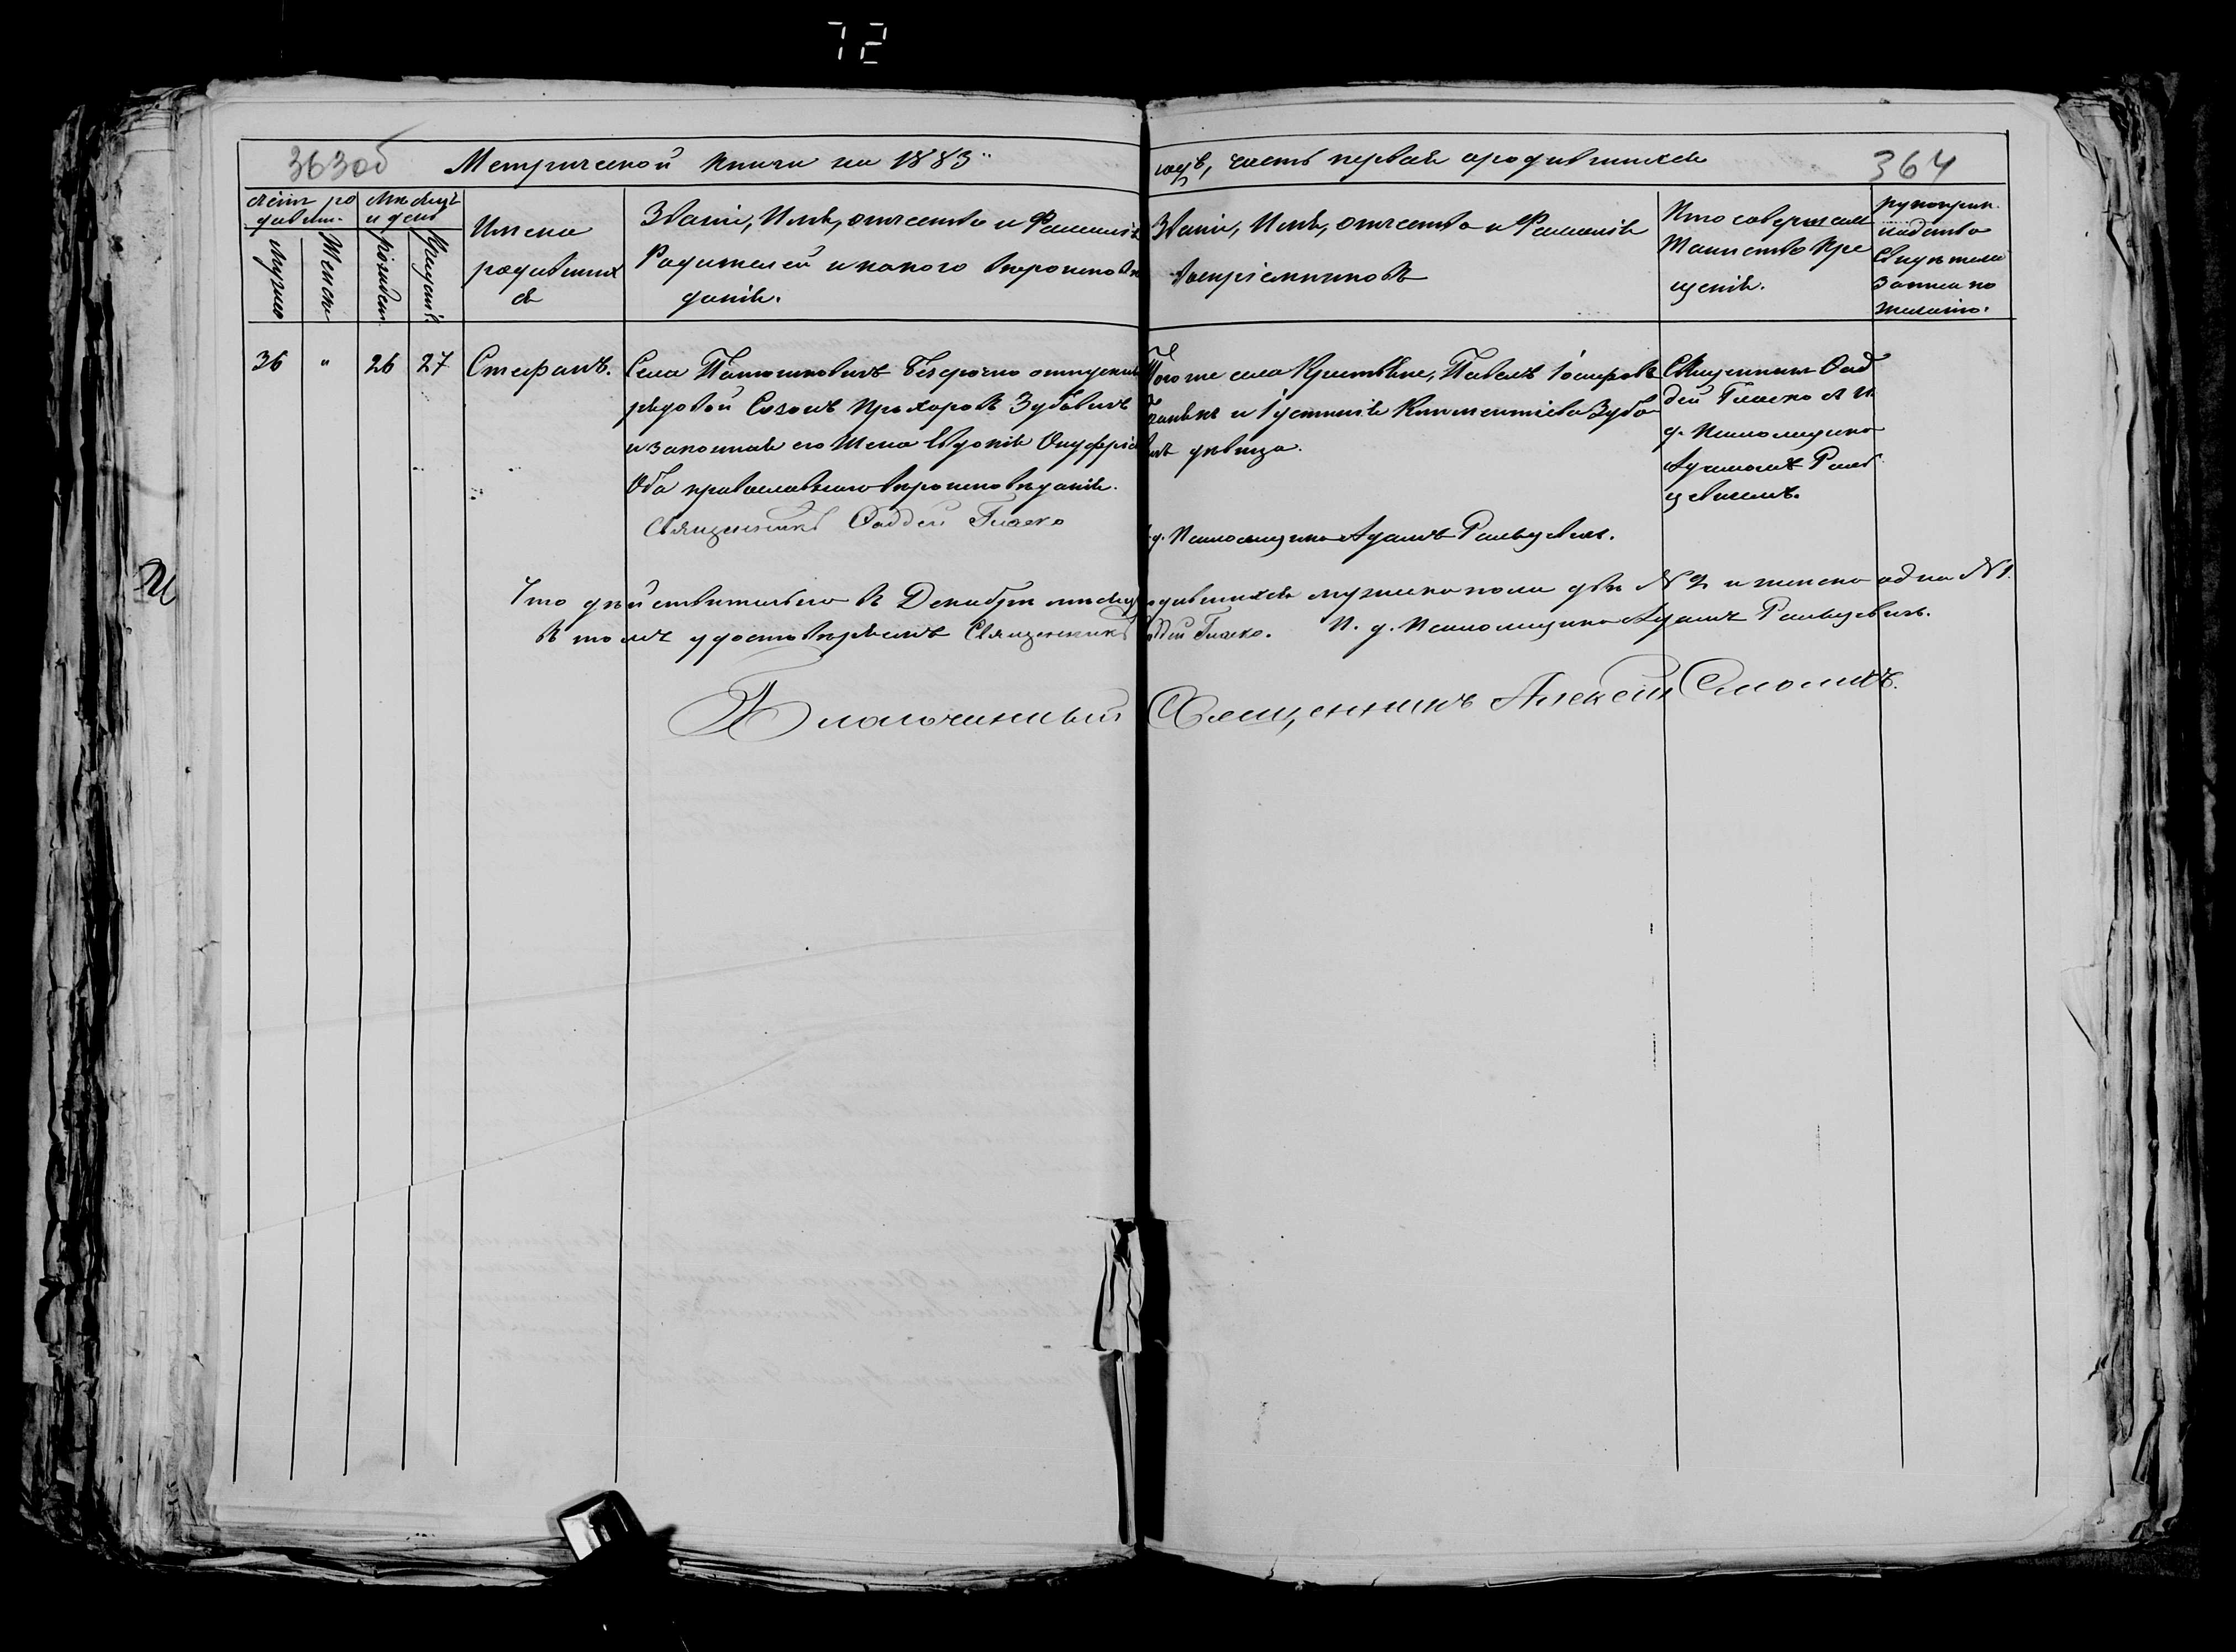 72
363об Метрической книги на 1883
годъ, часть первая о родившихся 364
счетъ родивш.
Мѣсяцъ и день
Мужеск
Женск
рожден
Крещенія
Имена
родивших
ся
Званіе, Имя, отчество и Фамилія
Родителей и какого вѣроисповѣ
данія.
Званіе, Имя, отчество и Фамилія
воспріемниковъ
Кто совершалъ
Таинство Кре
щенія.
рукоприк
ладство
Свидѣтелей
записи по
желанію.
36 " 26 27 Стефанъ.
Села безсрочно отпускной
рядовой Созонъ Прохоровъ Зубовичъ
и законная его жена Евдокія Онуфріева
Оба православнаго вѣроисповѣданія.
Священникъ Фаддей
Того же села Крестьяне, Павелъ Іосифовъ
и Іустинія Климентіева Зубо
дѣвица.
Священникъ Фад
дей съ и.
д. Псаломщика
Адамомъ
И. д. Псаломщика Адамъ
Что дѣйствительно въ Декабрѣ мѣсяцѣ родившихся мужеска пола два № 2 и женска одна № 1.
въ томъ удостовѣряемъ Священникъ Фаддей И. д. Псаломщика Адамъ
Благочинный Священникъ Алексѣй